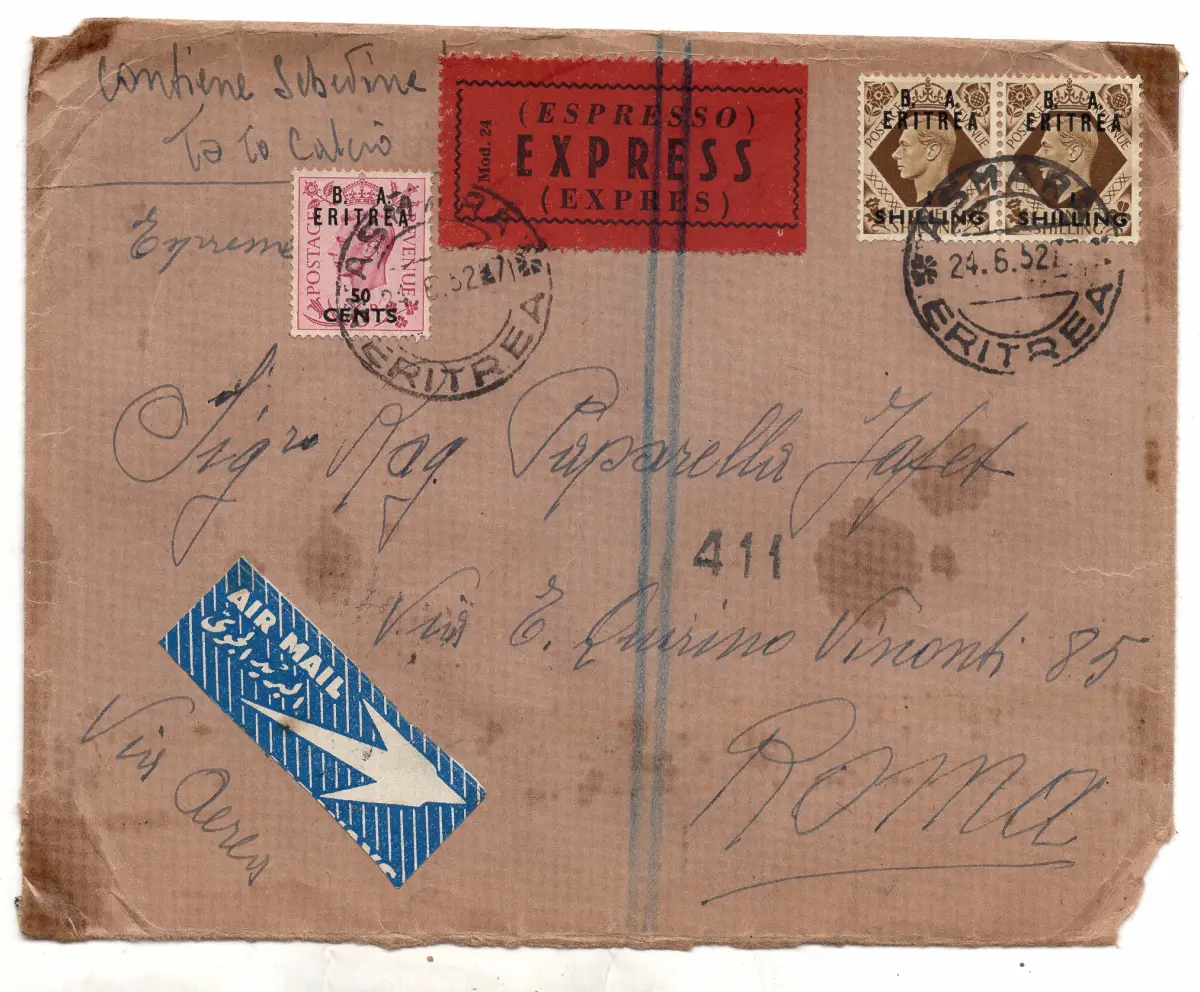 Contiene Schedine
To to Calcio
(ESPRESSO)
EXPRESS
(EXPRES)
Mod. 24
B. A.
ERITREA
POSTAGE
REVENUE
50
CENTS
B. A.
ERITREA
POSTAGE
REVENUE
1
SHILLING
B. A.
ERITREA
1
SHILLING
ASMARA
24.6.52
ERITREA
ASMARA
24.6.52
ERITREA
Sigr Rag Paparella Jafet
411
Via E. Quirino Visconti 85
Roma
AIR MAIL
البريد الجوي
Via Aerea